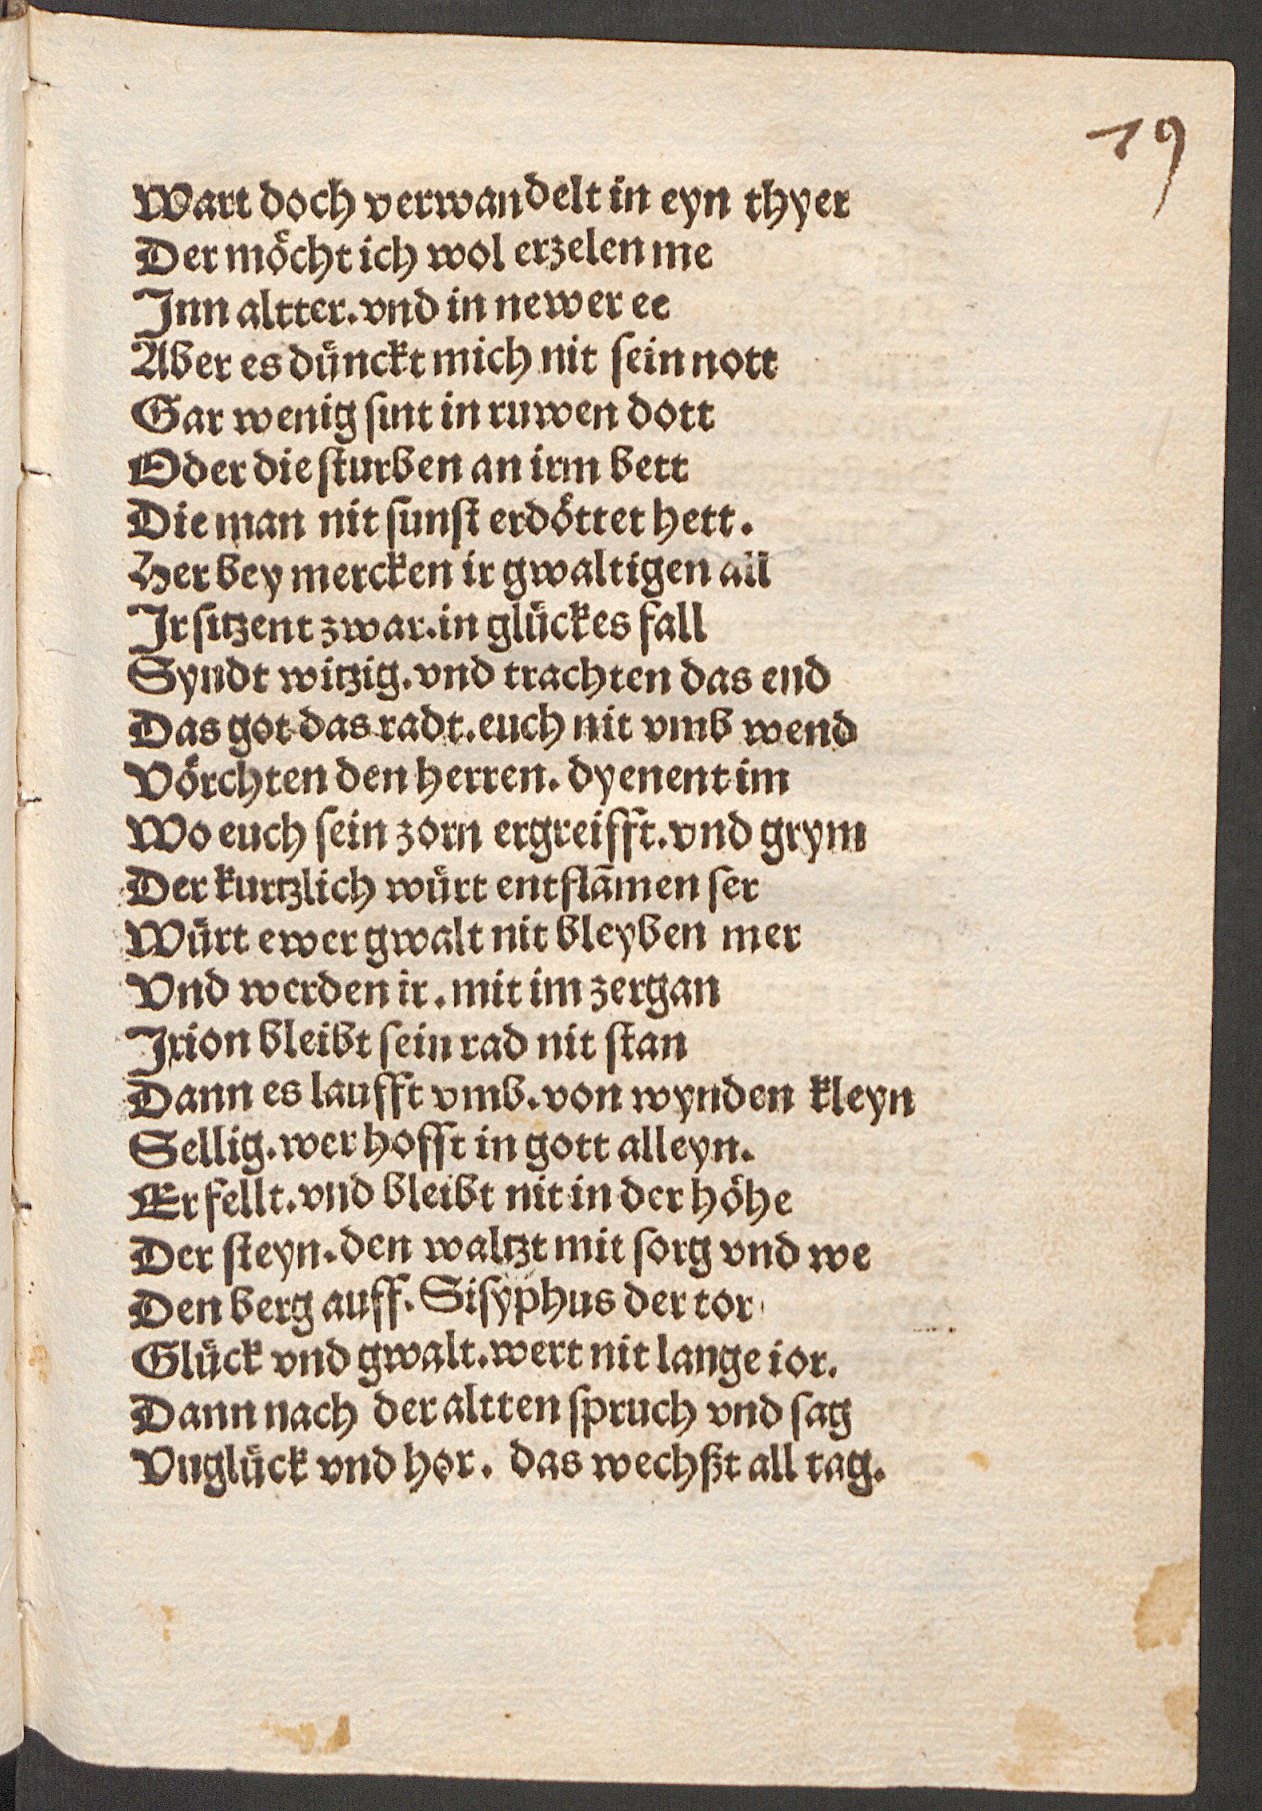 19
Wart doch verwandelt in eyn thyer
Der möcht ich wol erzelen me
Inn altter. vnd in newer ee
Aber es dünckt mich nit sein nott
Gar wenig sint in ruwen dott
Oder die sturben an irm bett
Die man nit sunst erdöttet hett.
Her bey mercken ir gwaltigen all
Ir sitzent zwar. in glückes fall
Syndt witzig. vnd trachten das end
Das got das radt. euch nit vmb wend
Vörchten den herren. dyenent im
Wo euch sein zorn ergreifft. vnd grym
Der kurtzlich würt entflāmen ser
Würt ewer gwalt nit bleyben mer
Vnd werden ir. mit im zergan
Ixion bleibt sein rad nit stan
Dann es laufft vmb. von wynden kleyn
Sellig. wer hofft in gott alleyn.
Er fellt. vnd bleibt nit in der höhe
Der steyn. den waltzt mit sorg vnd we
Den berg auff. Sisyphus der tor
Glück vnd gwalt. wert nit lange ior.
Dann nach der altten spruch vnd sag
Vnglück vnd hor. das wechßt all tag.